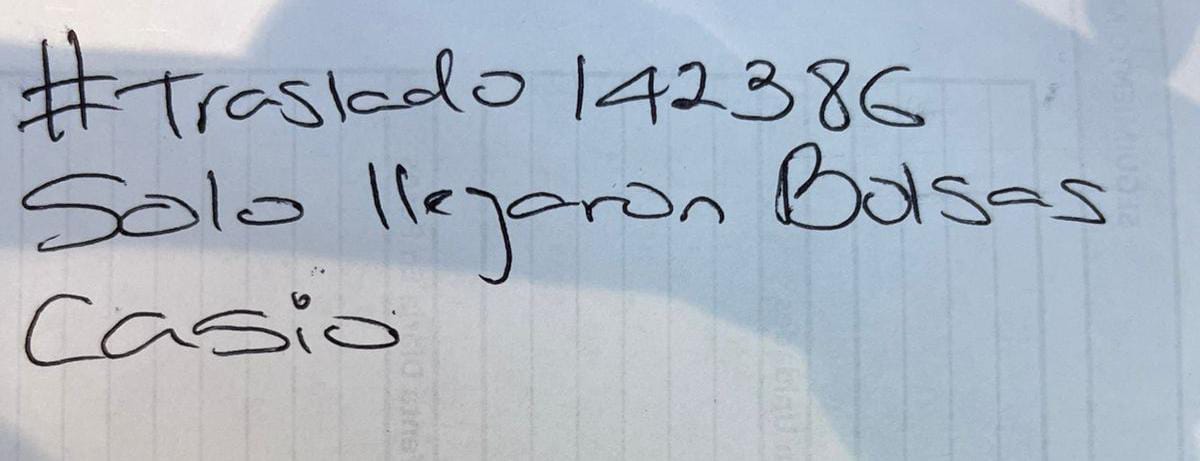 #Traslado 142386
Solo llegaron Bolsas
Casio